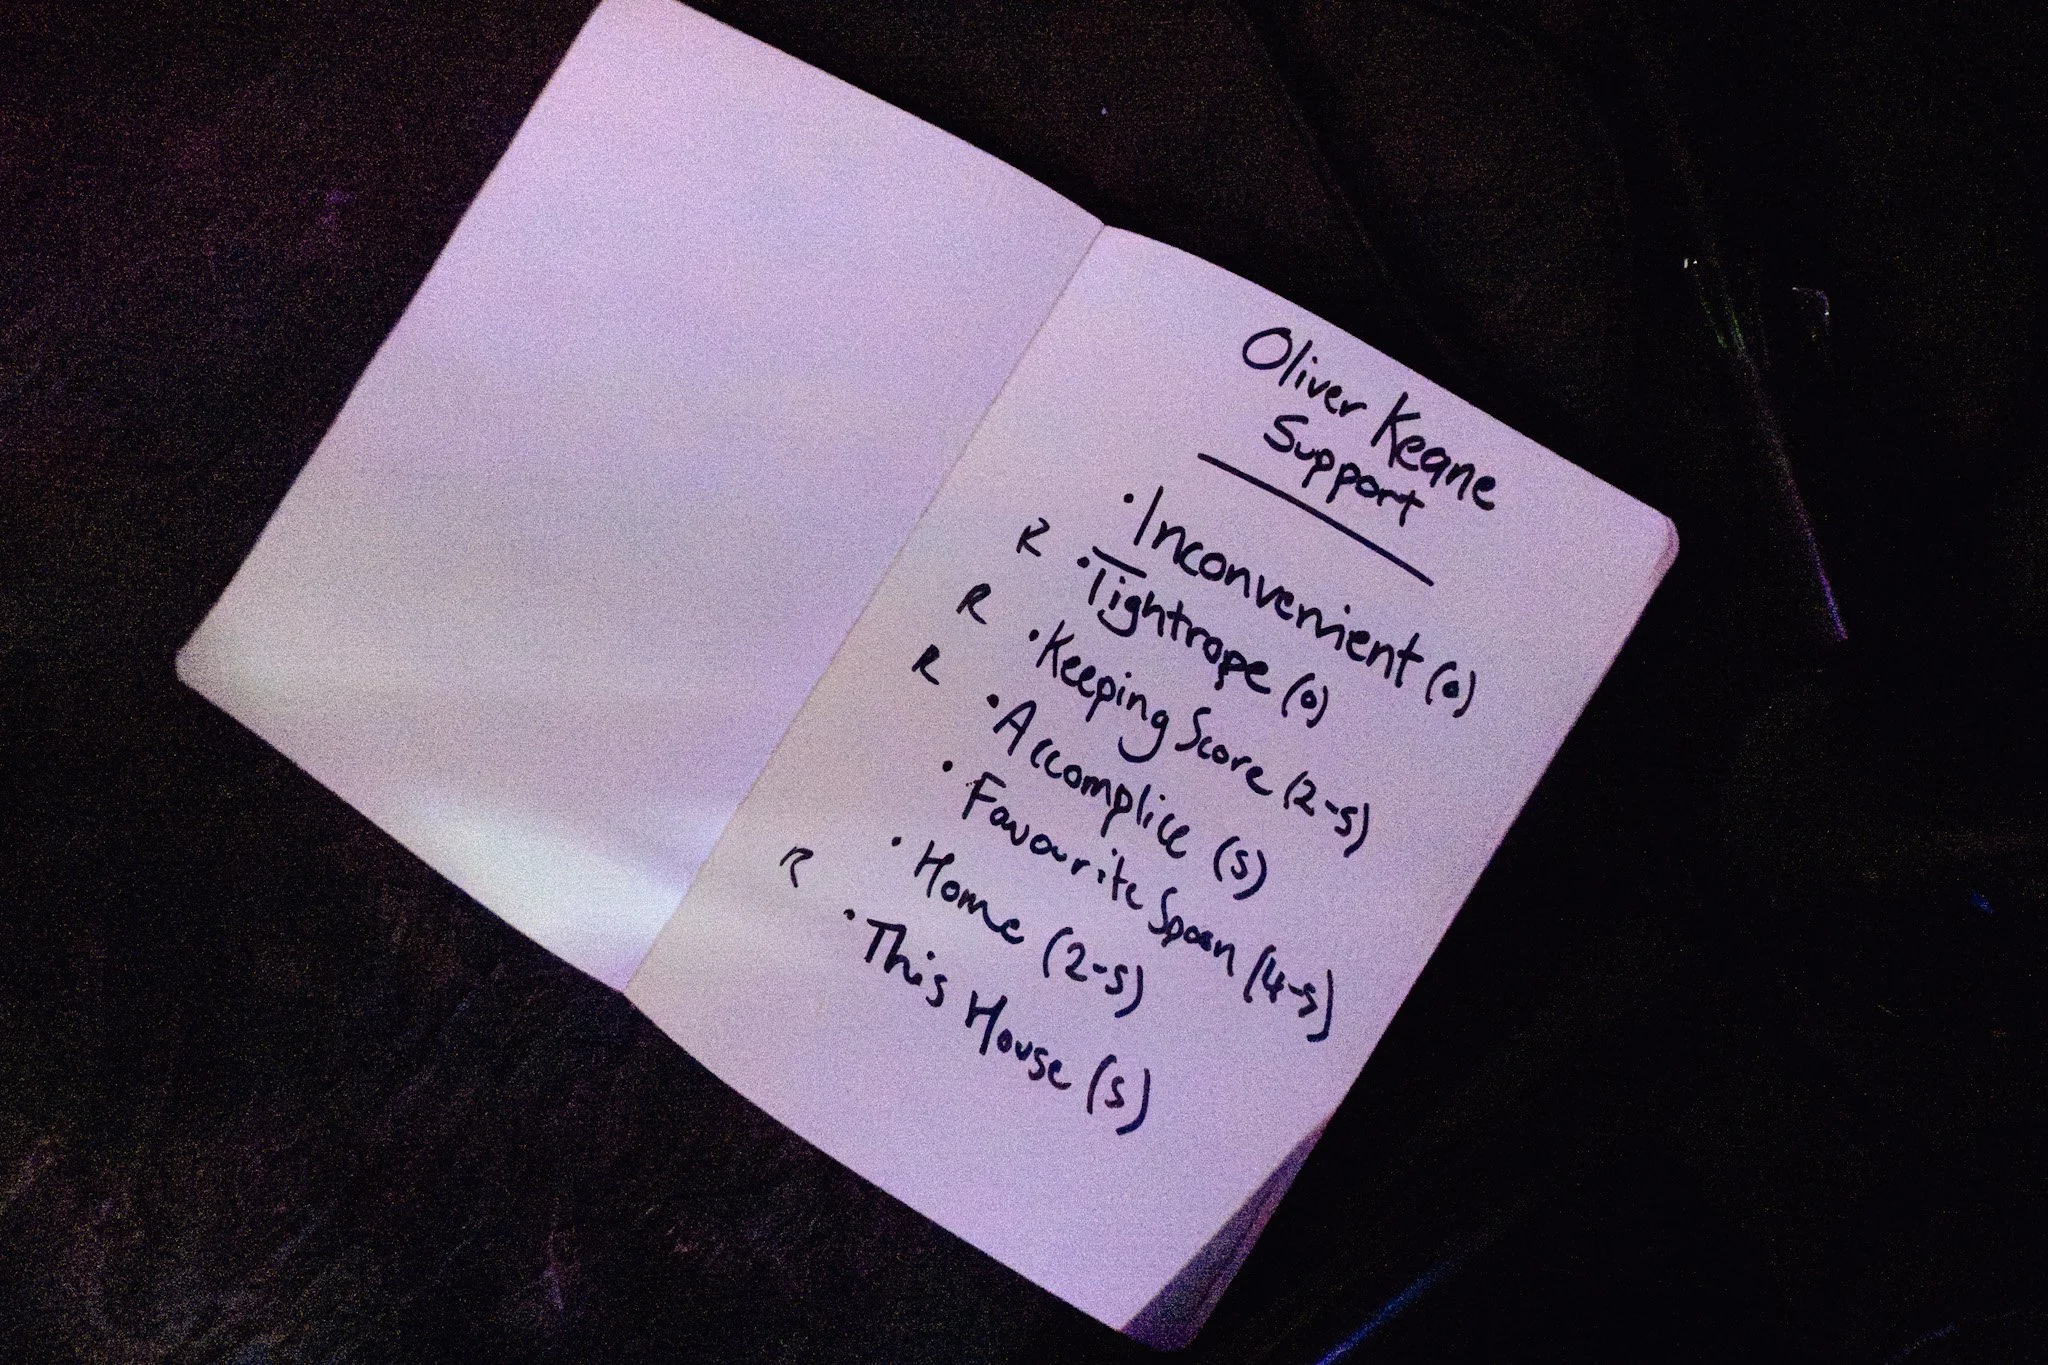 Oliver Keane
Support
• Inconvenient (0)
R • Tightrope (0)
R • Keeping Score (2-5)
R • Accomplice (5)
• Favourite Spoon (4-5)
• Home (2-5)
R • This House (5)